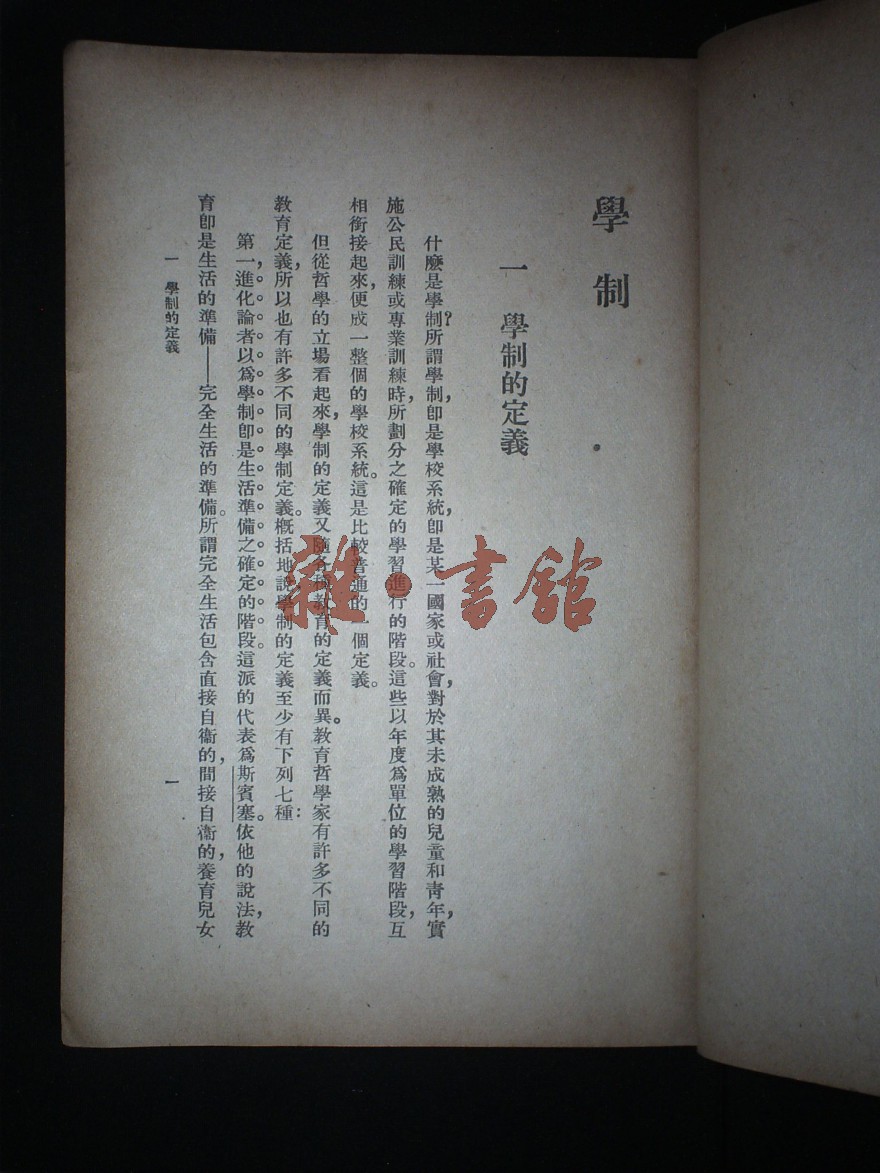 學制
一 學制的定義
什麼是學制？所謂學制，即是學校系統，即是某一國家或社會，對於其未成熟的兒童和靑年，實
施公民訓練或專業訓練時，所劃分之確定的學習進行的階段。這些以年度爲單位的學習階段，互
相銜接起來，便成一整個的學校系統。這是比較普通的一個定義。
但從哲學的立場看起來，學制的定義又隨各種教育的定義而異。教育哲學家有許多不同的
教育定義，所以也有許多不同的學制定義。槪括地說，學制的定義至少有下列七種：
第一，進化論者以爲學制即是生活準備之確定的階段。這派的代表爲斯賓塞。依他的說法，教
育即是生活的準備——完全生活的準備。所謂完全生活包含直接自衞的，間接自衞的，養育兒女
一 學制的定義
一
雜·書館